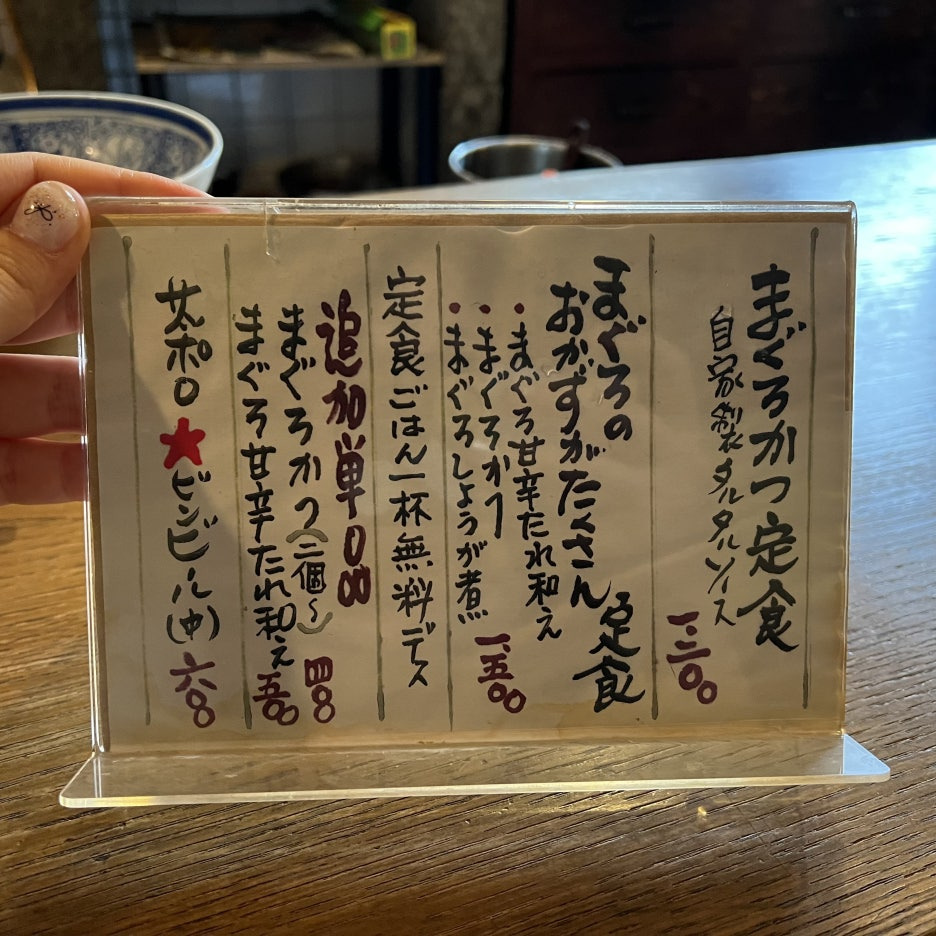 まぐろかつ定食
自家製タルタルソース
一、三〇〇
まぐろの
おかずがたくさん定食
・まぐろ甘辛たれ和え
・まぐろかつ
・まぐろしょうが煮
一、五〇〇
定食ごはん一杯無料デス
追加単品
まぐろかつ(二個〜) 四〇〇
まぐろ甘辛たれ和え 五〇〇
サッポロ★ビンビール(中) 六〇〇